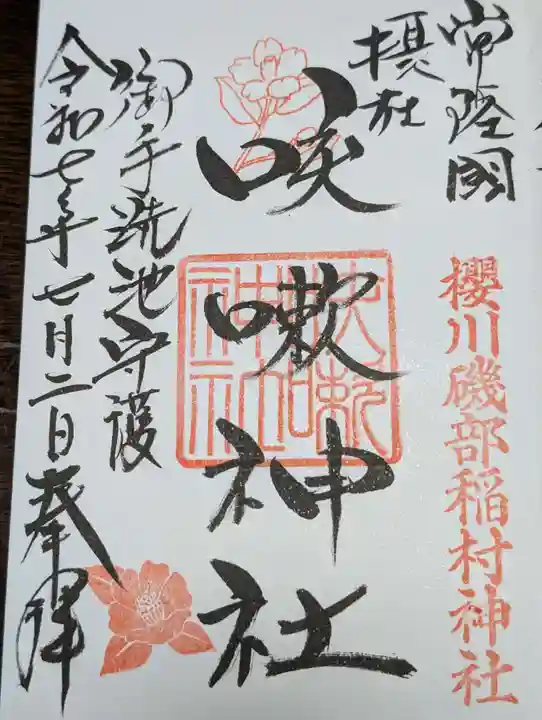 常陸國
櫻川磯部稲村神社
摂社
咳嗽神社
咳嗽神社
御手洗池守護
令和七年七月二日奉拝